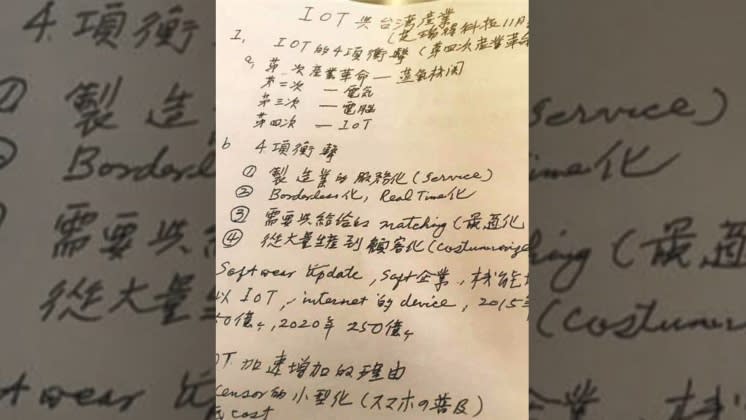 IOT與台湾産業
科技11月
1, IOT的4項衝擊 (第四次產業革命
a, 第一次產業革命 — 蒸氣機関
第二次 — 電気
第三次 — 電腦
第四次 — IoT
b 4項衝擊
① 製造業的服務化 (Service)
② Borderless化, Real Time化
③ 需要與給給的 matching (最適化
④ 從大量生産到顧客化 (Costumerize
Softwear Update, Soft企業,
以 IOT, internet的device, 2015年
50億ヶ, 2020年 250億ヶ
OT 加速增加的理由
censor的小型化 (スマホの普及)
cost